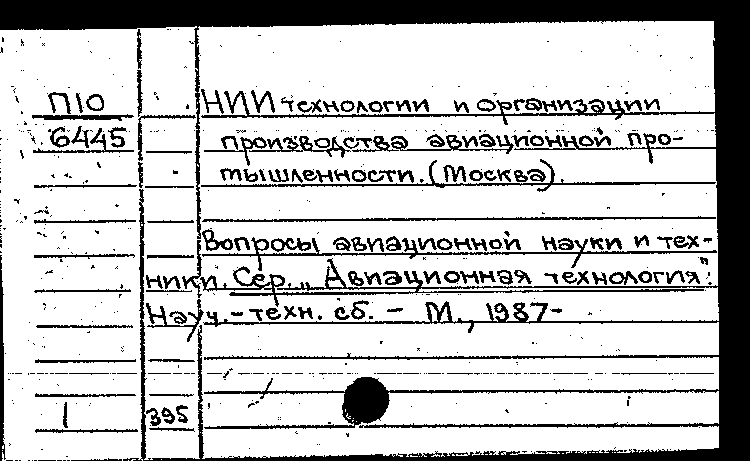 П10
6445
НИИ технологии и организации
производства авиационной про-
мышленности. (Москва).
Вопросы авиационной науки и тех-
ники. Сер. „Авиационная технология":
Науч.-техн. сб. - М., 1987-
1
395